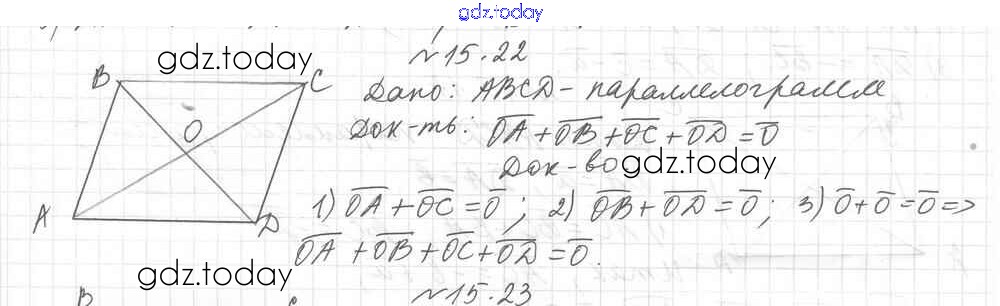 gdz.today
№15.22
gdz.today
B C
Дано: ABCD - параллелограмм
Док-ть: O͞A + O͞B + O͞C + O͞D = O͞
O
Док-во
gdz.today
1) O͞A + O͞C = O͞; 2) O͞B + O͞D = O͞; 3) O͞ + O͞ = O͞ =>
A D
O͞A + O͞B + O͞C + O͞D = O͞.
gdz.today
№15.23